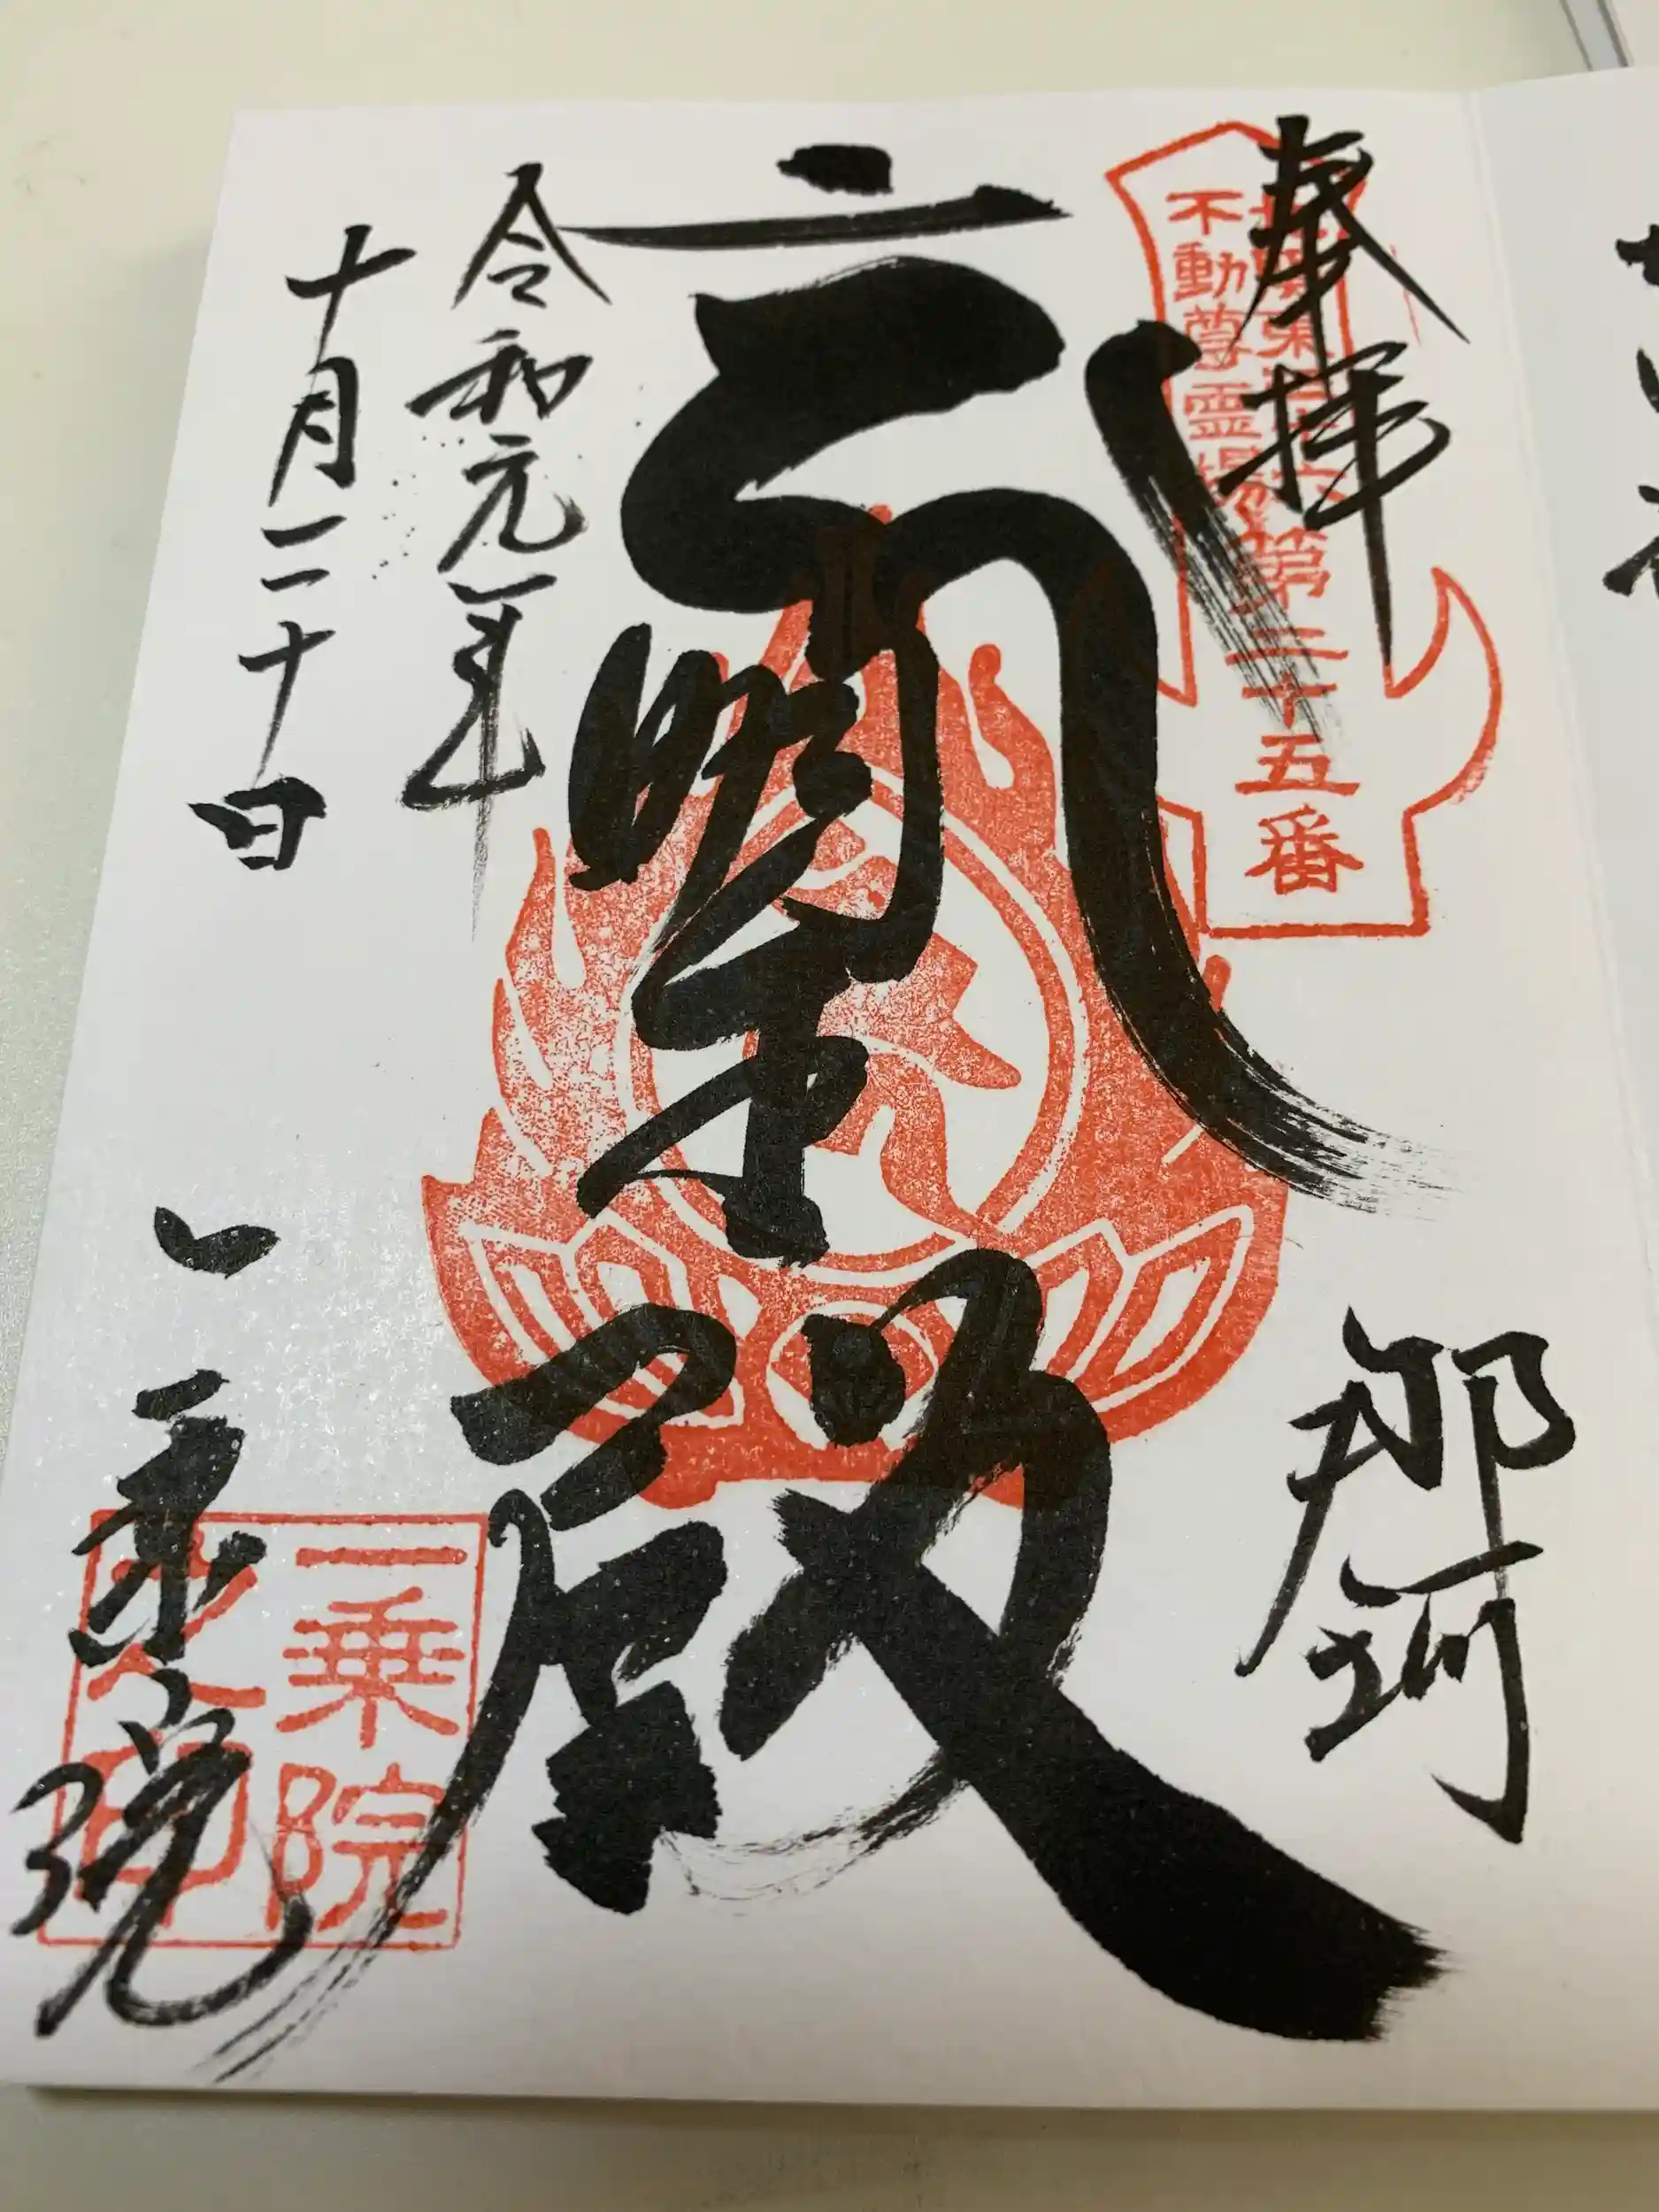 奉拝
北関東三十六
不動尊霊場第二十五番
那珂
明王殿
令和元年
十月二十日
一乗院
一乗院